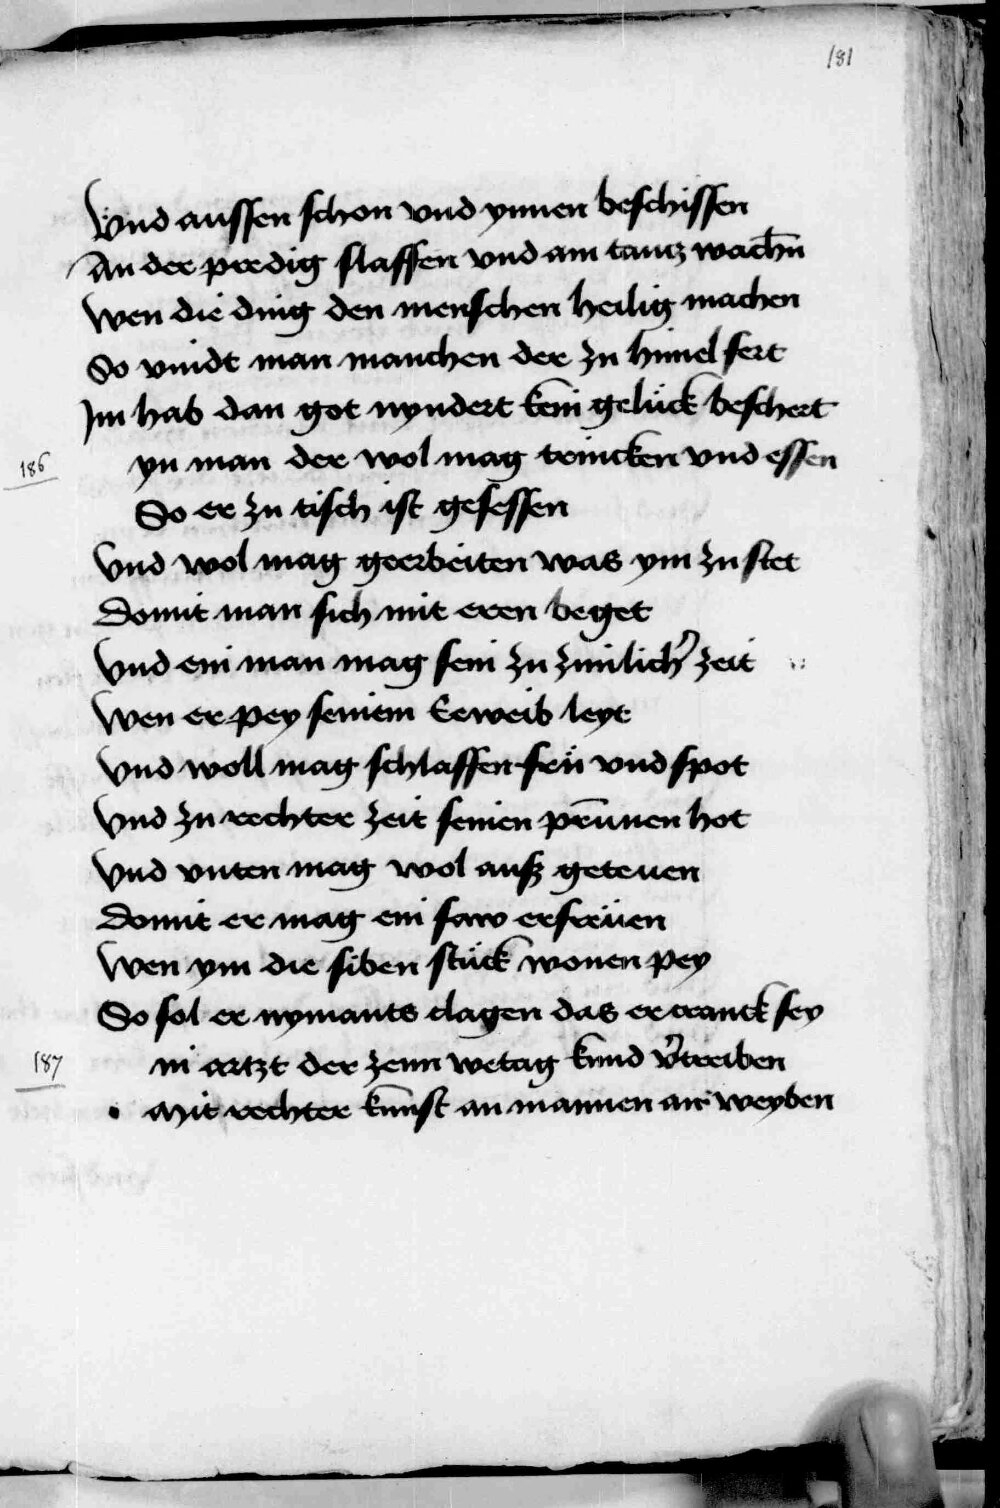 181
Vnd aussen schon vnd ynnen beschissen
An der predig slaffen vnd am tantz wachn̄
Wen die ding den menschen heilig machen
So vindt man manchen der zu himel fert
Im hab dan got nyndert kein gelück beschert
186
yn man der wol mag trincken vnd essen
So er zu tisch ist gesessen
Vnd wol mag geerbeiten was ym zu stet
Domit man sich mit eren beget
Vnd ein man mag sein zu zimlicher̕ zeit
Wen er pey seinem Eeweib leyt
Vnd woll mag schlaffen frü vnd spot
Vnd zu rechter zeit seinen prūnnen hot
Vnd vnten mag wol auß geteuen
Domit er mag ein saw erfreüen
Wen ym die siben stück wonen pey
So sol er nymants clagen das er cranck sey
187
in artzt der zenn wetag kund v̕treiben
Mit rechter kunst an mannen an weyben